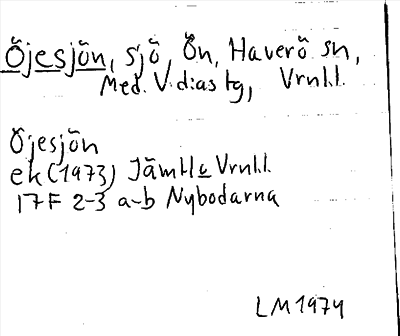 Öjesjön, sjö, Ön, Haverö sn,
Med. V. dias tg, Vrnll.
Öjesjön
ek (1973) Jämtl o Vrnll.
17F 2-3 a-b Nybodarna
LM 1974